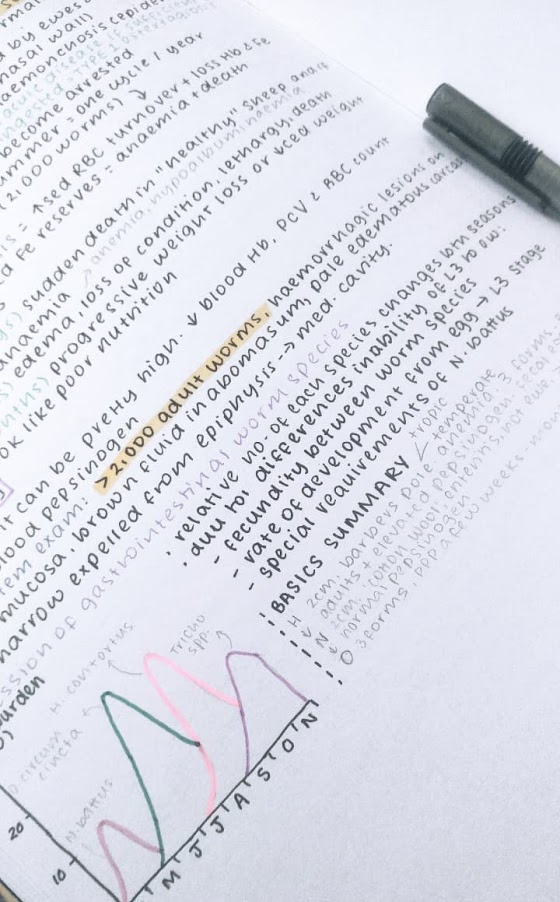 d by ewes
nasal wall)
haemonchosis epide
become arrested
ummer = one cycle / year
(21,000 worms) ↓
is = ↑sed RBC turnover + loss Hb & Fe
d Fe reserves = anaemia + death
gs) sudden death in "healthy" sheep and
anaemia → anaemia, hypoalbuminaemia
s) edema, loss of condition, lethargy, death
nths) progressive weight loss or ↓ced weight
ok like poor nutrition
it can be pretty high. ↓ blood Hb, PCV & RBC count
lood pepsinogen
tem exam: >21,000 adult worms, haemorrhagic lesions on
mucosa, brown fluid in abomasum, pale edematous carcas
narrow expelled from epiphysis → med. cavity.
ession of gastrointestinal worm species
• relative no. of each species changes btn seasons
• duu tor differences inability of L3 to ow:
- fecundity between worm species
- rate of development from egg → L3 stage
- special requirements of N. battus
BASICS SUMMARY
tropic
temperate
H 2cm, barbers pole, anaemia, 3 forms
↓ adults + elevated pepsinogen, fecal
N 2cm, cotton wool, enteritis, not ewe
↓ normal pepsinogen
O 3 forms, PPP a few weeks -
burden
H. contortus
Tricho spp.
O circum cincta
N. battus
20
10
M J J A S O N